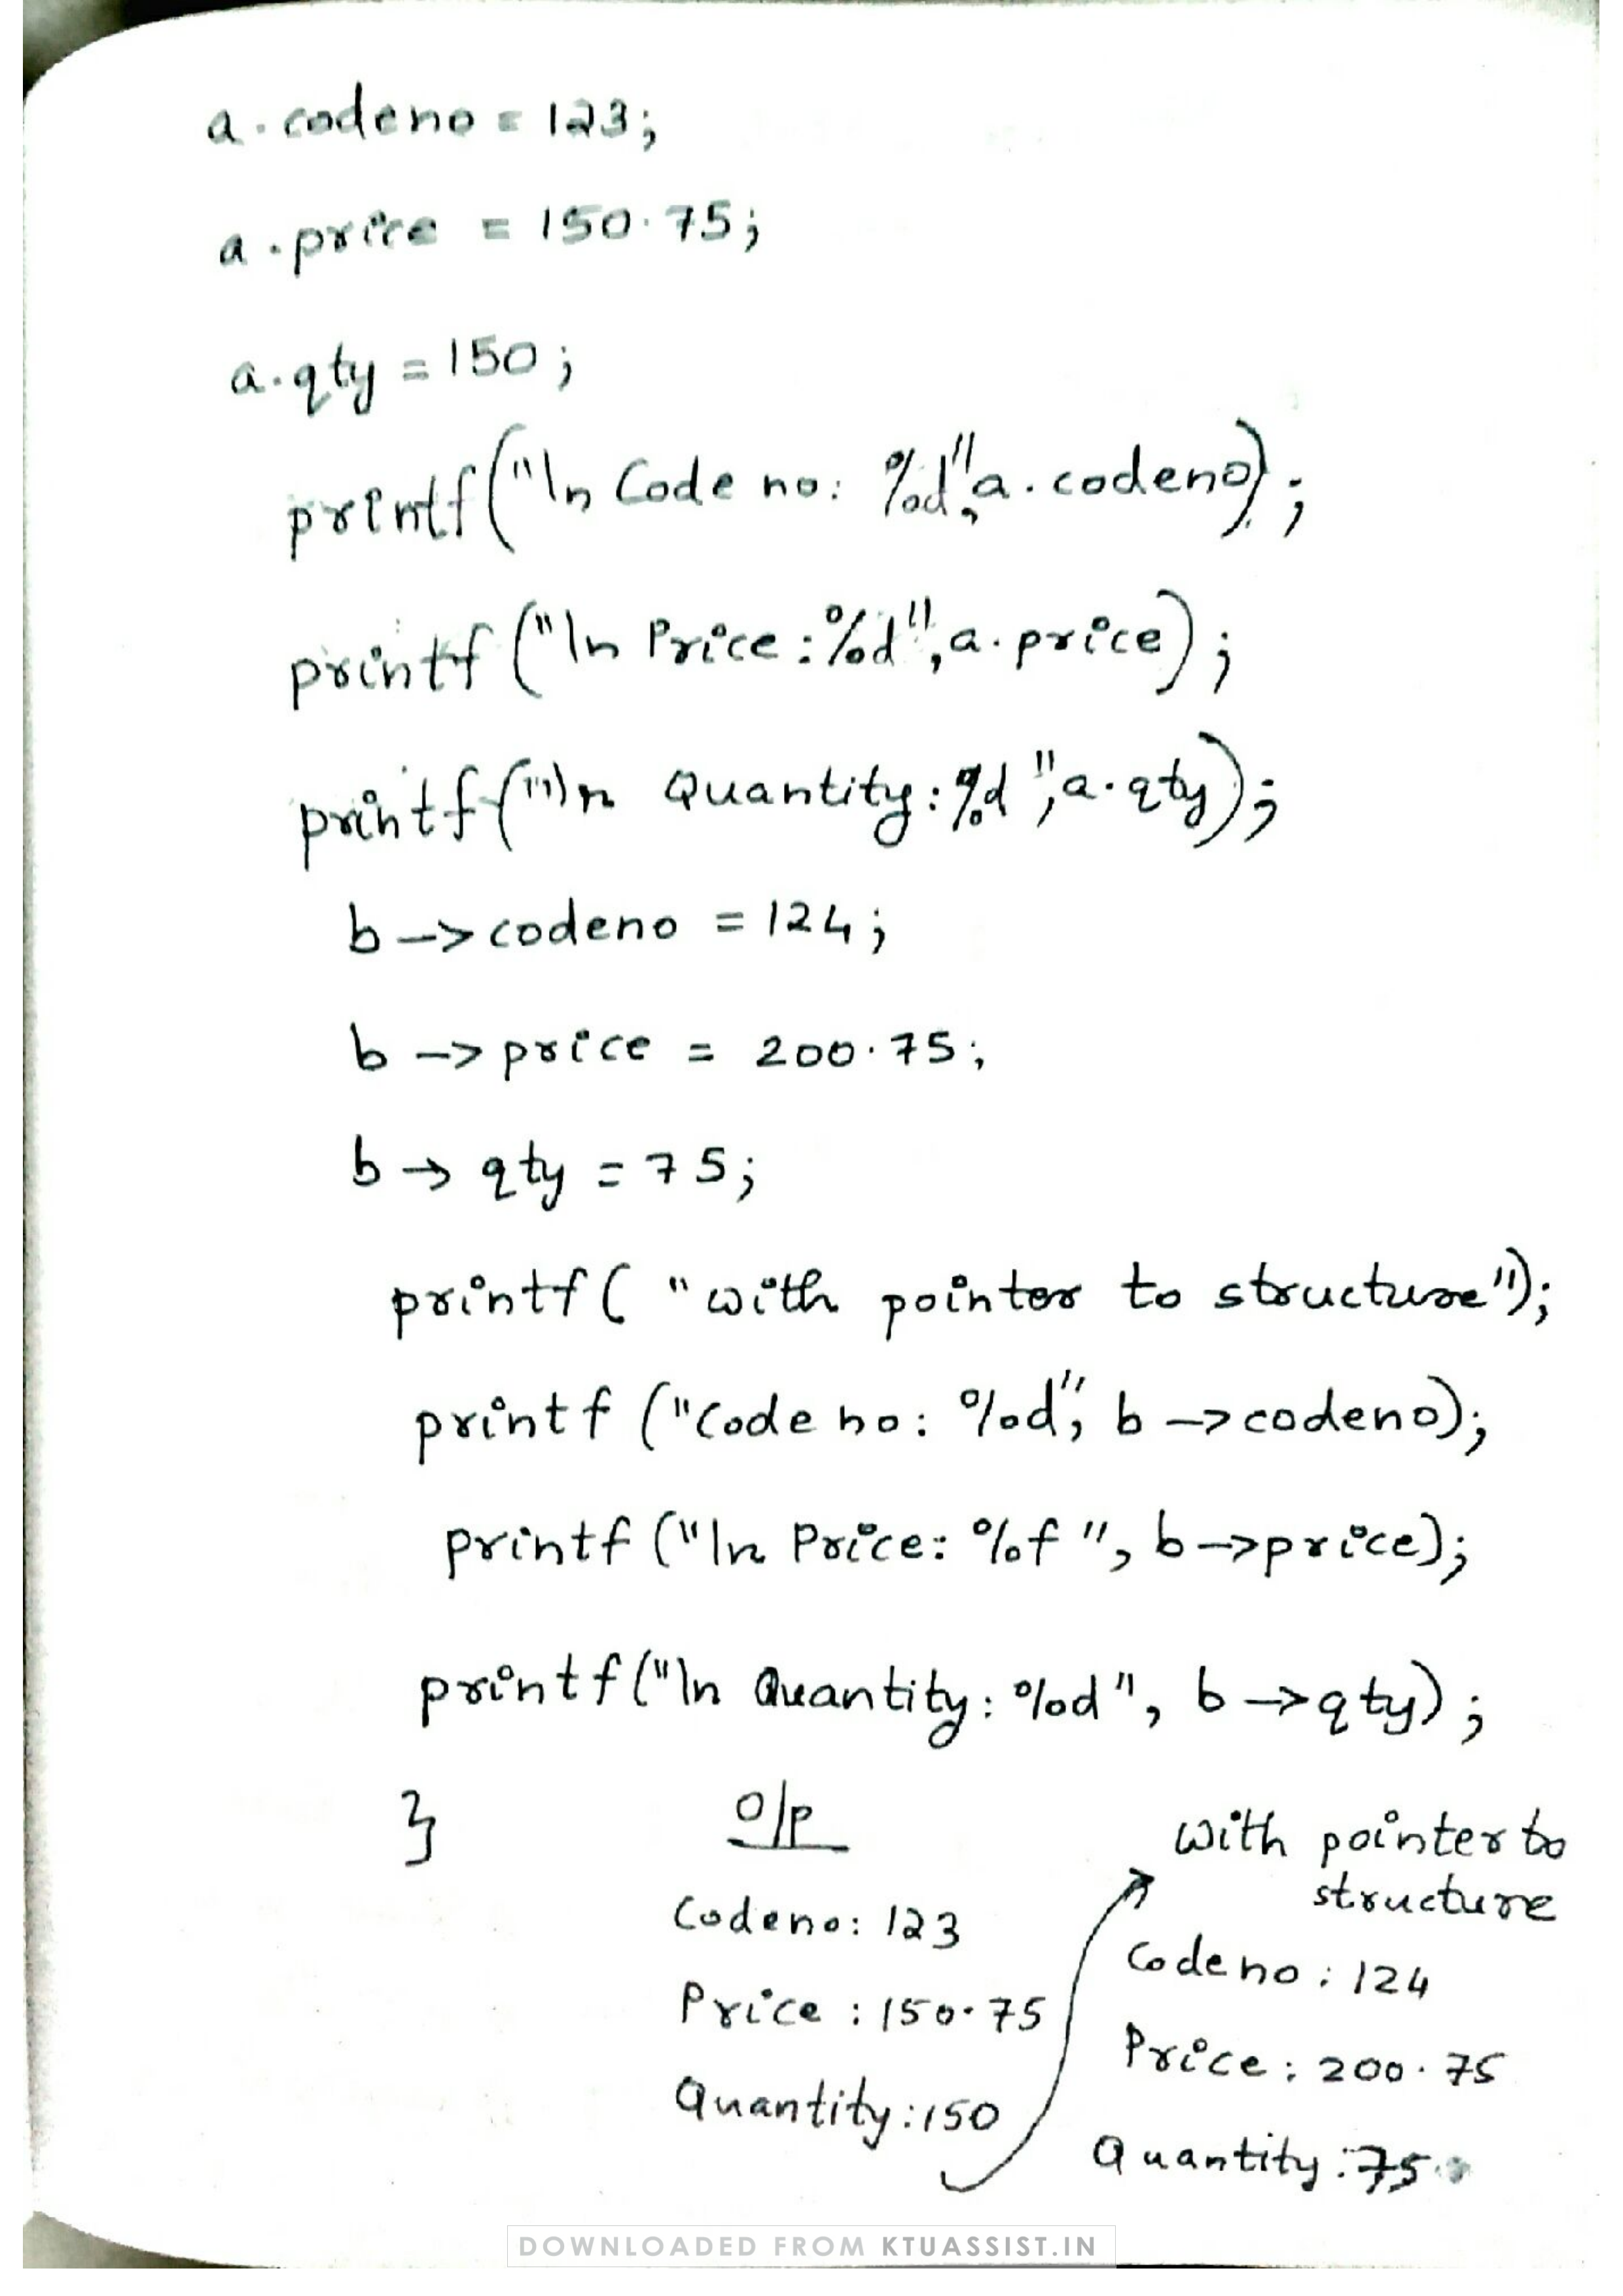 a.codeno = 123;
a.price = 150.75;
a.qty = 150;
printf("\n Code no: %d",a.codeno);
printf("\n Price:%d",a.price);
printf("\n Quantity:%d",a.qty);
b->codeno = 124;
b->price = 200.75;
b→qty = 75;
printf("with pointer to structure");
printf("Code no: %d", b->codeno);
printf("\n Price: %f", b->price);
printf("\n Quantity: %d", b->qty);
}
O/P
Codeno: 123
Price : 150.75
Quantity:150
with pointer to
structure
Codeno: 124
Price: 200.75
Quantity:75
DOWNLOADED FROM KTUASSIST.IN